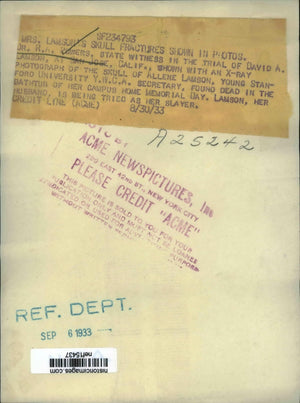 SF234793
MRS. LAWSON'S SKULL FRACTURES SHOWN IN PHOTOS.
DR. R.A. SUMMERS, STATE WITNESS IN THE TRIAL OF DAVID A.
LAMSON, AT SAN JOSE, CALIF., SHOWN WITH AN X-RAY
PHOTOGRAPH OF THE SKULL OF ALLENE LAMSON, YOUNG STAN-
FORD UNIVERSITY Y.W.C.A. SECRETARY, FOUND DEAD IN THE
BATHTUB OF HER CAMPUS HOME MEMORIAL DAY. LAMSON, HER
HUSBAND, IS BEING TRIED AS HER SLAYER.
CREDIT LINE (ACME) 8/30/33
A25242
ACME NEWSPICTURES, Inc
220 EAST 42ND ST., NEW YORK CITY
PLEASE CREDIT "ACME"
THIS PICTURE IS SOLD TO YOU FOR YOUR
PUBLICATION ONLY AND MUST NOT BE LOANED
WITHOUT WRITTEN
REF. DEPT.
SEP 6 1933
historicimages.com
nef15437